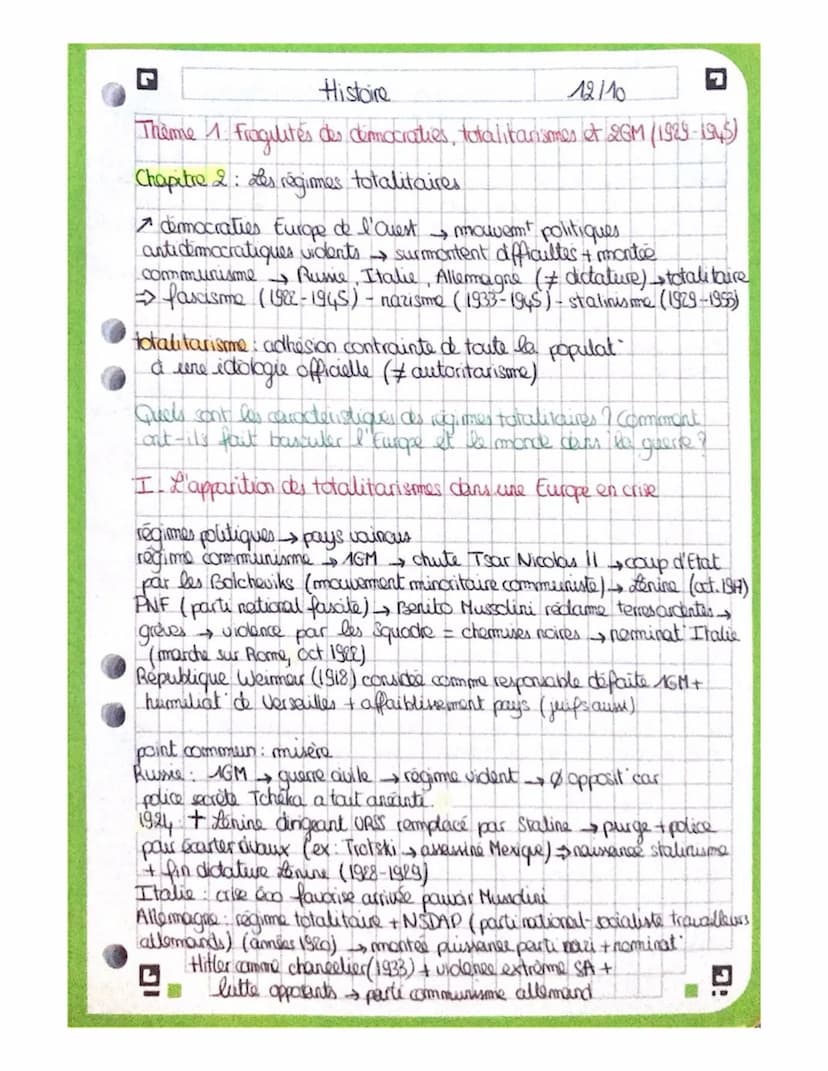 Histoire 12/10
Thème 1. Fragilités des démocraties, totalitarismes et 2GM (1929-1945)
Chapitre 2 : Les régimes totalitaires
↗ démocraties Europe de l'Ouest → mouvemt politiques
antidémocratiques violents → surmontent difficultés + montée
communisme → Russie, Italie, Allemagne (≠ dictature) → totalitaire
⇒ fascisme (1922-1945) - nazisme (1933-1945) - stalinisme (1929-1953)
totalitarisme : adhésion contrainte de toute la populat°
à une idologie officielle (≠ autoritarisme)
Quels sont les caractéristiques des régimes totalitaires ? Comment
ont-ils fait basculer l'Europe et le monde dans la guerre ?
I - L'apparition des totalitarismes dans une Europe en crise
régimes politiques → pays vaincus
régime communisme → 1GM → chute Tsar Nicolas II → coup d'Etat
par les Bolcheviks (mouvement minoritaire communiste) → Lénine (oct. 1917)
PNF (parti national fascite) → Benito Mussolini réclame terres →
grèves → violance par les Squadre = chemises noires → nominat° Italie
(marche sur Rome, oct 1922)
République Weimar (1918) considée comme responsable défaite 1GM +
humiliat° de Versailles + affaiblissement pays (juifs aussi)
point commun : misère
Russie : 1GM → guerre civile → régime violent → ∅ opposit° car
police secrète Tcheka a tout anéanti.
1924 : ✝ Lénine dirigeant URSS remplacé par Staline → purge + police
pour écarter rivaux (ex : Trotski → assassiné Mexique) ⇒ naissance stalinisme
+ fin dictature Lénine (1928-1929)
Italie : crise éco favorise arrivée pouvoir Mussolini
Allemagne : régime totalitaire + NSDAP (parti national-socialiste travailleurs
allemands) (années 1920) → montée puissance parti nazi + nominat°
Hitler comme chancelier (1933) + violence extrême SA +
lutte opposants → parti communisme allemand